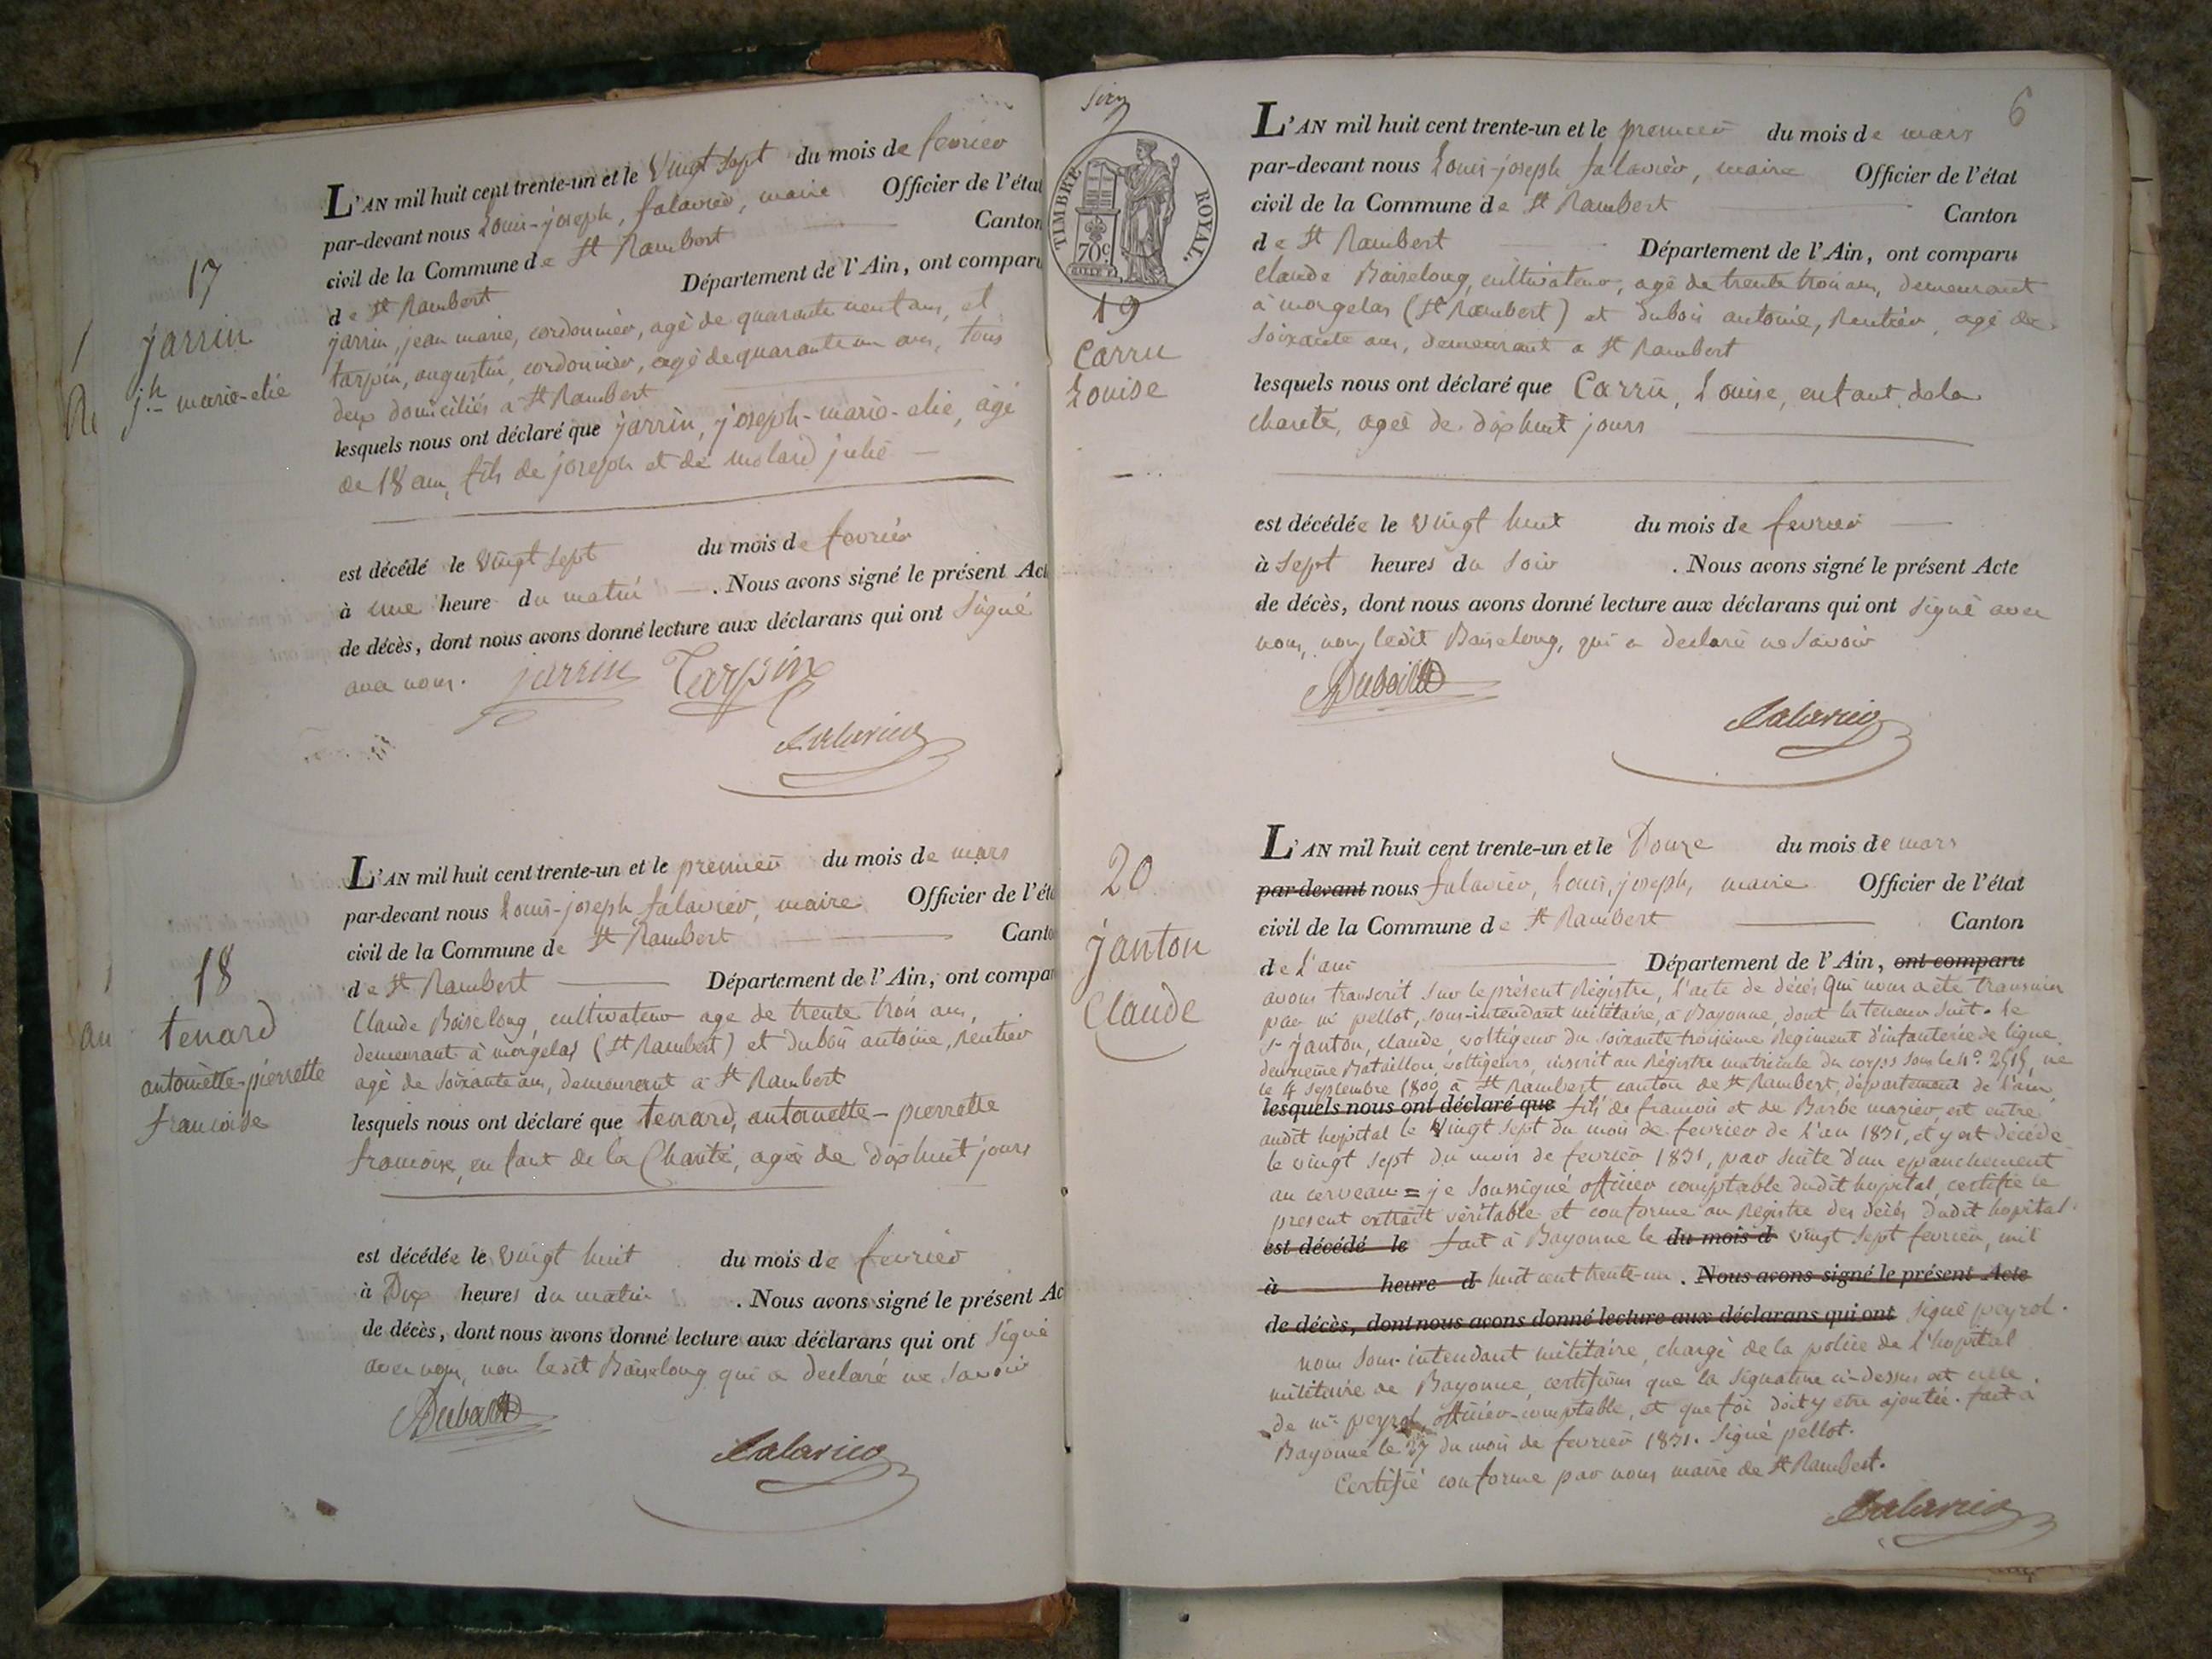 17
jarrin
jh marie-elie
L'AN mil huit cent trente-un et le vingt sept du mois de fevrier
par-devant nous Louis-joseph, falavier, maire Officier de l'état
civil de la Commune de St Rambert Canton
de St Rambert Département de l'Ain, ont comparu
jarrin, jean marie, cordonnier, agé de quarante neuf ans, et
tarpin, augustin, cordonnier, agé de quarante un ans, tous
deux domiciliés a St Rambert
lesquels nous ont déclaré que jarrin, joseph-marie-elie, agé
de 18 ans, fils de joseph et de molard julie
est décédé le vingt sept du mois de fevrier
à une heure du matin . Nous avons signé le présent Act
de décès, dont nous avons donné lecture aux déclarans qui ont signé
avec nous. jarrin Tarpin
falavier
18
tenard
antoinette-pierrette
francoise
L'AN mil huit cent trente-un et le premier du mois de mars
par-devant nous Louis-joseph falavier, maire Officier de l'éta
civil de la Commune de St Rambert Canto
de St Rambert Département de l'Ain, ont compar
Claude Boiselong, cultivateur age de trente trois ans,
demeurant à morgelas (St Rambert) et dubois antoine, rentier
agé de soixante ans, demeurant a St Rambert
lesquels nous ont déclaré que tenard, antoinette-pierrette
francoise, enfant de la Charité, agée de dix huit jours
est décédée le vingt huit du mois de fevrier
à Dix heures du matin . Nous avons signé le présent Ac
de décès, dont nous avons donné lecture aux déclarans qui ont signé
avec nous, non ledit Boiselong qui a declaré ne savoir
Dubois
falavier
6
TIMBRE ROYAL.
70c
19
Carru
Louise
L'AN mil huit cent trente-un et le premier du mois de mars
par-devant nous Louis-joseph falavier, maire Officier de l'état
civil de la Commune de St Rambert Canton
de St Rambert Département de l'Ain, ont comparu
Claude Boiselong, cultivateur, agé de trente trois ans, demeurant
à morgelas (St Rambert) et dubois antoine, Rentier, agé de
soixante ans, demeurant a St Rambert
lesquels nous ont déclaré que Carru, Louise, enfant de la
charité, agée de dix huit jours
est décédée le vingt huit du mois de fevrier
à sept heures du soir . Nous avons signé le présent Acte
de décès, dont nous avons donné lecture aux déclarans qui ont signé avec
nous, non ledit Boiselong, qui a declaré ne savoir
Dubois
falavier
20
janton
Claude
L'AN mil huit cent trente-un et le Douze du mois de mars
par-devant nous falavier, Louis, joseph, maire Officier de l'état
civil de la Commune de St Rambert Canton
de l'ain Département de l'Ain, ont comparu
avons transcrit sur le présent Régistre, l'acte de décés qui nous a été transmis
par mr pellot, sous-intendant militaire, a Bayonne, dont la teneur suit. Le
sr janton, claude, voltigeur du soixante troisième Regiment d'infanterie de ligne
deuxieme Bataillon, voltigeurs, inscrit au Régistre matricule du corps sous le no. 2515, né
le 4 septembre 1800 à St Rambert canton de St Rambert, département de l'ain
lesquels nous ont déclaré que fils de francois et de Barbe mazier, est entré
audit hopital le vingt sept du mois de fevrier de l'an 1831, et y est décédé
le vingt sept du mois de fevrier 1831, par suite d'un epanchement
au cerveau = je soussigné officier comptable dudit hopital, certifie le
present extrait véritable et conforme au Régistre des décés dudit hopital.
est décédé le fait à Bayonne le du mois d vingt sept fevrier, mil
à heure d huit cent trente-un. Nous avons signé le présent Acte
de décès, dont nous avons donné lecture aux déclarans qui ont signé peyrol.
nous sous-intendant militaire, chargé de la police de l'hopital
militaire de Bayonne, certifions que la signature ci-dessus est celle
de mr peyrol, officier-comptable, et que foi doit y etre ajoutée. fait a
Bayonne le 27 du mois de fevrier 1831. signé pellot.
Certifié conforme par nous maire de St Rambert.
falavier